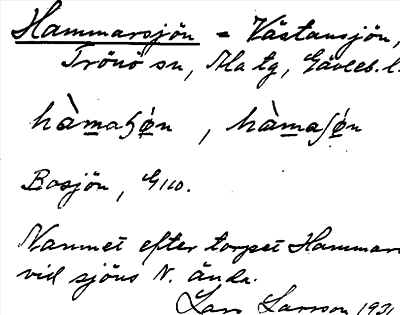 Hammarsjön = Västansjön,
Trönö sn, Ala tg, Gävleb. l.
hàmaʃǿn , hàmaʃǿn
Bosjön, G110.
Namnet efter torpet Hammar
vid sjöns N. ända.
Lars Larsson 1931